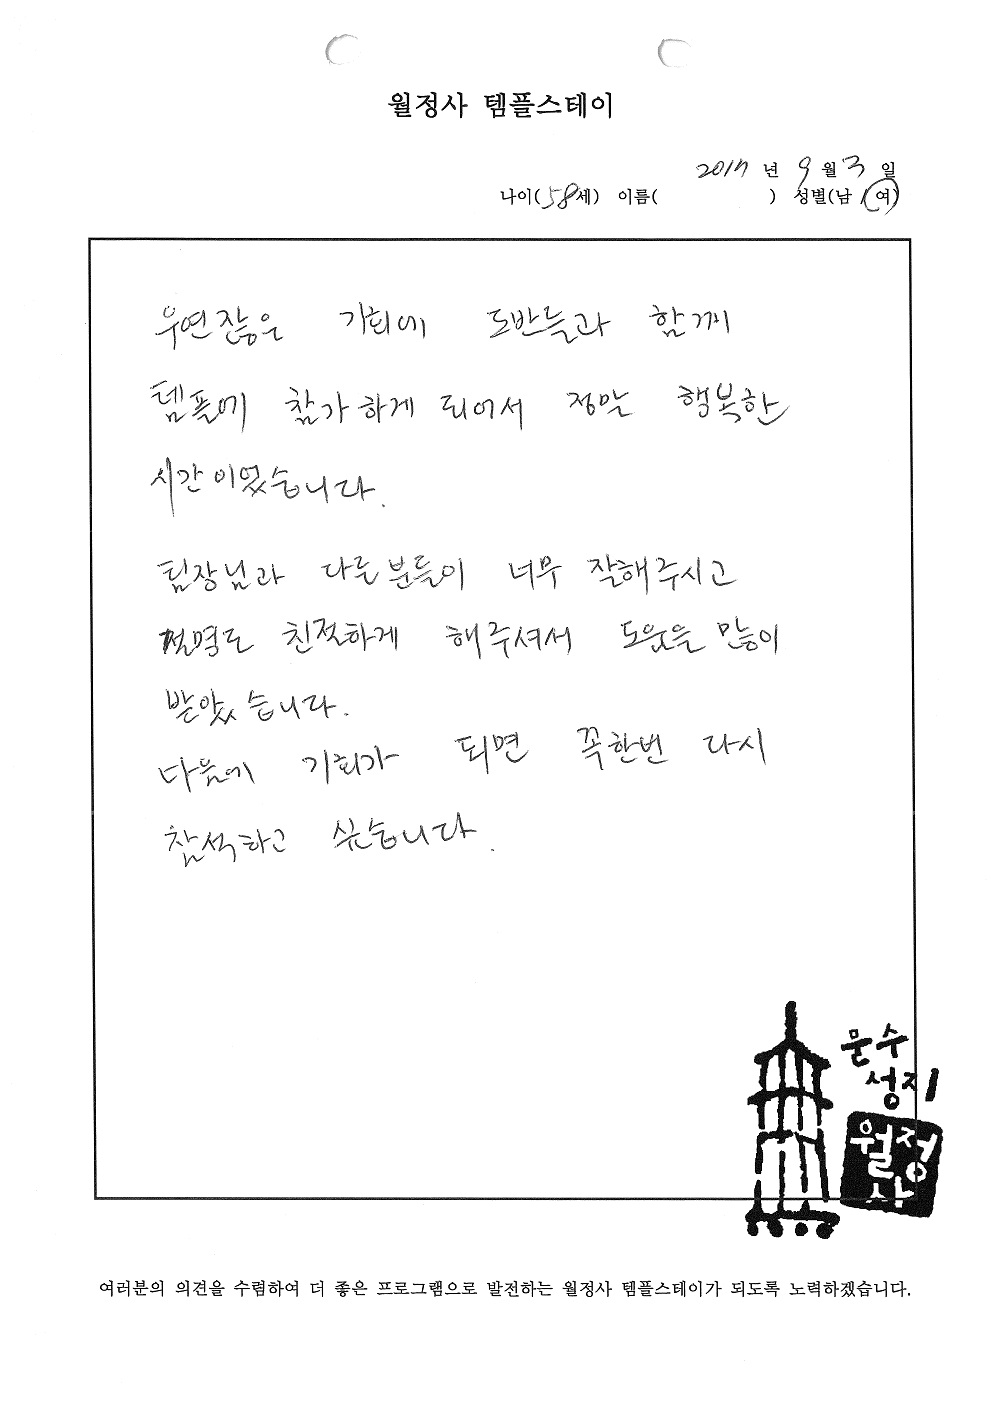 월정사 템플스테이
2017 년 9 월 3 일
나이(58세) 이름( ) 성별(남 / 여)
우연잖은 기회에 도반들과 함께
템플에 참가하게 되어서 정말 행복한
시간이었습니다.
팀장님과 다른분들이 너무 잘해주시고
설명도 친절하게 해주셔서 도움을 많이
받았습니다.
다음에 기회가 되면 꼭한번 다시
참석하고 싶습니다.
문수
성지
월정
사
여러분의 의견을 수렴하여 더 좋은 프로그램으로 발전하는 월정사 템플스테이가 되도록 노력하겠습니다.